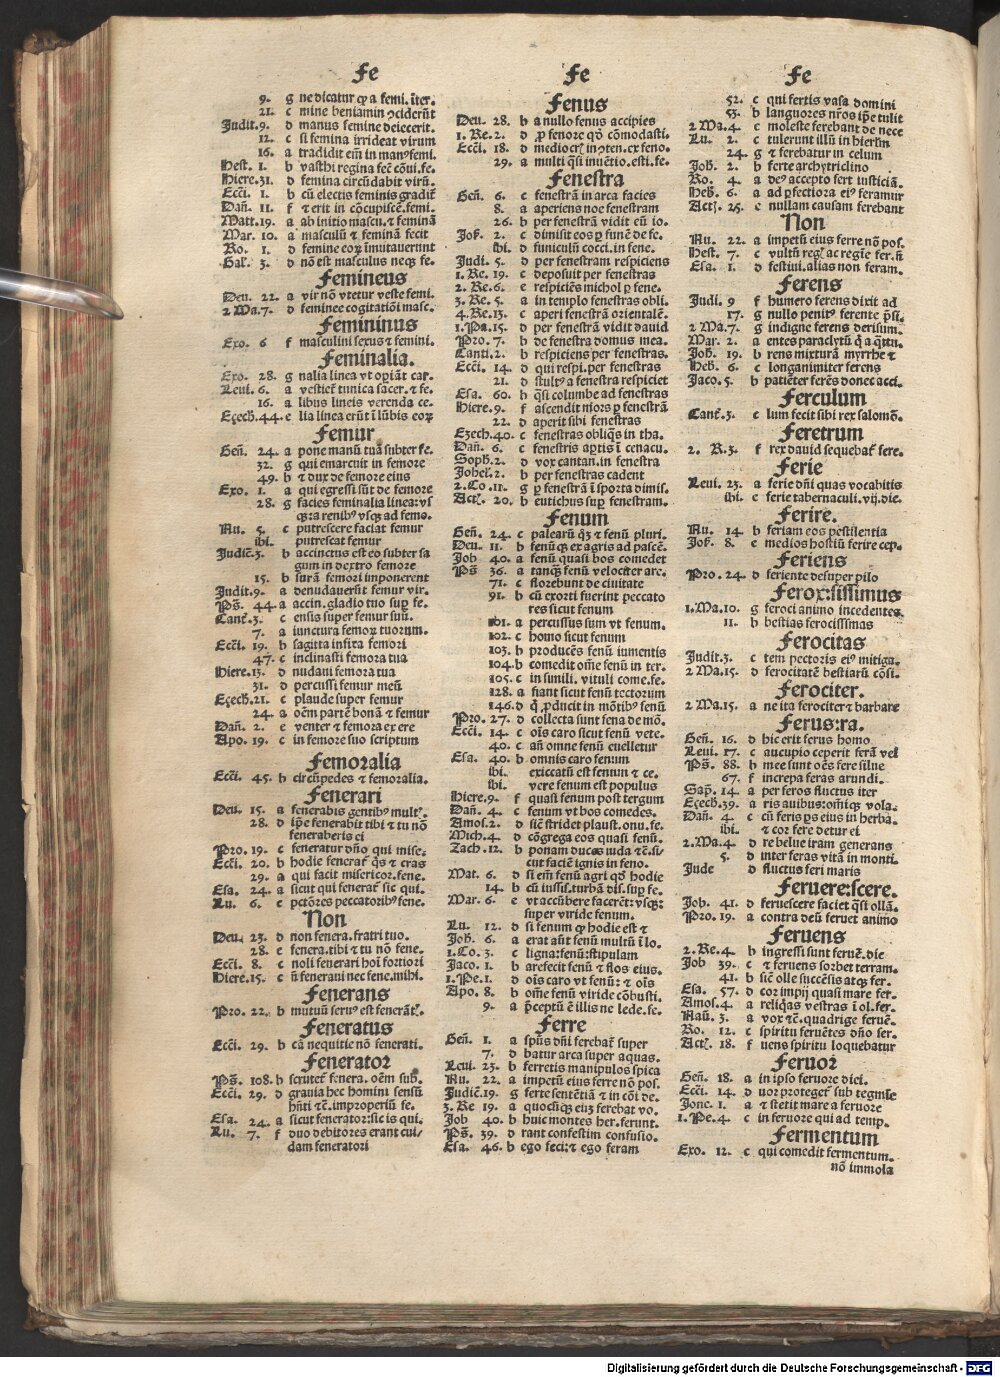 Fe
9. g ne dicatur ꝙ a femi. īter.
21. c mine beniamin ꝯciderūt
Judit.9. d manus femine deiecerit.
12. c si femina irrideat virum
16. a tradidit eū in manꝰfemi.
Hest. 1. b vasthi regina fec̄ cōui.fe.
Hiere.31. d femina circūdabit virū.
Ecc̄i. 1. b cū electis feminis gradit̄
Dañ. 11. f ⁊ erit in cōcupiscē.femi.
Matt.19. a ab initio mascu.⁊ feminā
Mar. 10. a masculū ⁊ feminā fecit
Ro. 1. d femine eoꝝ īmutauerunt
Gal. 3. d nō est masculus neqꝫ fe.
Femineus
Deu. 22. a vir nō vtetur veste femi.
2 Ma.7. d feminee cogitatiōi masc.
Femininus
Exo. 6 f masculini sexus ⁊ femini.
Feminalia.
Exo. 28. g nalia linea vt oꝑiāt car.
Leui. 6. a vestiet̄ tunica sacer.⁊ fe.
16. a libus lineis verenda ce.
Eȝech.44.e lia linea erūt ī lūbis eoꝝ
Femur
Gen̄. 24. a pone manū tuā subter fe.
32. g qui emarcuit in femore
49. b ⁊ dux de femore eius
Exo. 1. a qui egressi sūt de femore
28. g facies feminalia linea:vs
qꝫ:a renibꝰ vsqꝫ ad femo.
Nu. 5. c putrescere faciat femur
ibi. putrescat femur
Judic̄.3. b accinctus est eo subter sa
gum in dextro femore
15. b surā femori imponerent
Judit.9. a denudauerūt femur vir.
Ps̄. 44. a accin.gladio tuo suꝑ fe.
Cant̄.3. c ensis super femur suū.
7. a iunctura femoꝝ tuorum.
Ecc̄i. 19. b sagitta infixa femori
47. c inclinasti femora tua
Hiere.13. d nudani femora tua
31. d percussi femur meū
Eȝech.21. c plaude super femur
24. a oēm partē bonā ⁊ femur
Dañ. 2. e venter ⁊ femora ex ere
Apo. 19. c in femore suo scriptum
Femoralia
Ecc̄i. 45. b circūpedes ⁊ femoralia.
Fenerari
Deu. 15. a fenerabis gentibꝰ mult̄.
28. d ip̄e fenerabit tibi ⁊ tu nō
feneraberis ei
Pro. 19. c feneratur dn̄o qui mise.
Ecc̄i. 20. b hodie fenerat̄ q̄s ⁊ cras
29. a qui facit misericor.fene.
Esa. 24. a sicut qui fenerat̄ sic qui.
Lu. 6. e pctōres peccatoribꝰ fene.
Non
Deu. 23. d non fenera.fratri tuo.
28. e fenera.tibi ⁊ tu nō fene.
Ecc̄i. 8. c noli fenerari hoī fortiori
Hiere.15. c n̄ fenerani nec fene.mihi.
Fenerans
Pro. 22. b mutuū seruꝰ est fenerāt̄.
Feneratus
Ecc̄i. 29. b cā nequitie nō fenerati.
Fenerator
Ps̄. 108. b scrutet̄ fenera.oēm sub.
Ecc̄i. 29. d grauia hec homini sensū
hn̄ti ⁊c̄.improperiū fe.
Esa. 24. a sicut fenerator:sic is qui.
Lu. 7. f duo debitores erant cui-
dam feneratori
Fe
Fenus
Deu. 28. b a nullo fenus accipies
1. Re.2. d ꝓ fenore qd̄ cōmodasti.
Ecc̄i. 18. d mediocr̄ in ꝯten.ex feno.
29. a multi q̄si inuētio.esti.fe.
Fenestra
Gen̄. 6. c fenestrā in arca facies
8. a aperiens noe fenestram
26. b per fenestrā vidit eū io.
Jos̄. 2. c dimisit eos ꝑ funē de fe.
ibi. d funiculū cocci.in fene.
Judi. 5. d per fenestram respiciens
1. Re. 19. c deposuit per fenestras
2. Re.6. e respiciēs michol ꝑ fene.
3. Re. 5. a in templo fenestras obli.
4.Re.13. c aperi fenestrā orientalē.
1.Pa.15. d per fenestrā vidit dauid
Pro. 7. b de fenestra domus mea.
Canti.2. b respiciens per fenestras.
Ecc̄i. 14. d qui respi.per fenestras
21. d stultꝰ a fenestra respiciet
Esa. 60. b q̄si columbe ad fenestras
Hiere.9. f ascendit mors ꝑ fenestrā
22. d aperit sibi fenestras
Eȝech.40. c fenestras obliq̄s in tha.
Dañ. 6. c fenestris aꝑtis ī cenacu.
Soph.2. d vox cantan.in fenestra
Johel.2. b per fenestras cadent
2.Co.11. g ꝑ fenestrā ī sporta dimis.
Act̄. 20. b eutichus suꝑ fenestram.
Fenum
Gen̄. 24. c palearū qꝫ ⁊ fenū pluri.
Deu. 11. b fenūqꝫ ex agris ad pascē.
Job 40. a fenū quasi bos comedet
Ps̄ 36. a tanqꝫ fenū velociter arc.
71. c florebunt de ciuitate
91. b cū exorti fuerint peccato
res sicut fenum
101. a percussus sum vt fenum.
102. c homo sicut fenum
103. b producēs fenū iumentis
104.b comedit om̄e fenū in ter.
105. c in simili. vituli come.fe.
128. a fiant sicut fenū tectorum
146.d q̄ ꝓducit in mōtibꝰ fenū
Pro. 27. d collecta sunt fena de mō.
Ecc̄i. 14. c oīs caro sicut fenū vete.
40. c an̄ omne fenū euelletur
Esa. 40. b omnis caro fenum
ibi. exiccatū est fenum ⁊ ce.
ibi. vere fenum est populus
Hiere.9. f quasi fenum post tergum
Dañ. 4. c fenum vt bos comedes.
Amos.2. d sic̄ stridet plaust.onu.fe.
Mich.4. d cōgrega eos quasi fenū.
Zach.12. b ponam duces iuda ⁊c̄.si-
cut faciē ignis in feno.
Mat. 6. d si em̄ fenū agri qd̄ hodie
14. b cū iussis.turbā dis.suꝑ fe.
Mar. 6. e vt accūbere facerēt:vsqꝫ:
super viride fenum.
Lu. 12. d si fenum ꝙ hodie est ⁊
Joh̄. 6. a erat aūt fenū multū ī lo.
1.Co. 3. c ligna:fenū:stipulam
Jaco. 1. b arefecit fenū ⁊ flos eius.
1.Pe.1. d oīs caro vt fenū: ⁊ oīs
Apo. 8. b om̄e fenū viride cōbusti.
9. a p̄ceptū ē illis ne lede.fe.
Ferre
Gen̄. 1. a spūs dn̄i ferebat̄ super
7. d batur arca super aquas.
Leui. 23. b ferretis manipulos spica
Nu. 22. a impetū eius ferre nō pos.
Judic̄.19. g ferte sentētiā ⁊ in cōi de.
3. Re 19. a quocūqꝫ eiȝ ferebat vo.
Job 40. b huic montes her.ferunt.
Ps̄. 39. d rant confestim confusio.
Esa. 46. b ego feci:⁊ ego feram
Fe
52. c qui fertis vasa domini
53. b languores nr̄os ip̄e tulit
2 Ma.4. c moleste ferebant de nece
Lu. 2. c tulerunt illū in hierlm̄
24. g ⁊ ferebatur in celum
Joh̄. 2. b ferte archytriclino
Ro. 4. a deꝰ accepto fert iusticiā.
Heb̄. 6. a ad ꝑfectiora eiꝰ feramur
Act̄. 25. e nullam causam ferebant
Non
Nu. 22. a impetū eius ferre nō pos.
Hest. 7. c vultū regꝭ ac regīe fer.n̄
Esa. 1. d festiui.alias non feram.
Ferens
Judi. 9 f humero ferens dixit ad
17. g nullo penitꝰ ferente p̄si.
2 Ma.7. g indigne ferens derisum.
Mar. 2. a entes paraclytū q̄ a q̄ttu.
Joh̄. 19. b rens mixturā myrrhe ⁊
Heb̄. 6. c longanimiter ferens
Jaco. 5. b patiēter ferēs donec acci.
Ferculum
Cant̄.3. c lum fecit sibi rex salomō.
Feretrum
2. R.3. f rex dauid sequebat̄ fere.
Ferie
Leui. 23. a ferie dn̄i quas vocabitis
ibi. e ferie tabernaculi.vij.die.
Ferire.
Nu. 14. b feriam eos pestilentia
Jos̄. 8. c medios hostiū ferire cep.
Feriens
Pro. 24. d feriente desuper pilo
Ferox:sissimus
1.Ma.10. g feroci animo incedentes
11. b bestias ferocissimas
Ferocitas
Judit.3. c tem pectoris eiꝰ mitiga.
2 Ma.15. d ferocitatē bestiarū cōsi.
Ferociter.
2 Ma.15. a ne ita ferociter ⁊ barbare
Ferus:ra.
Gen̄. 16. d hic erit ferus homo
Leui. 17. c aucupio ceperit ferā vel
Ps̄. 88. b mee sunt oēs fere silue
67. f increpa feras arundi.
Sap̄. 14. a per feros fluctus iter
Eȝech.39. a ris auibus:om̄iqꝫ vola.
Dañ. 4. c cū feris ꝑs eius in herba.
ibi. ⁊ cor fere detur ei
2.Ma.4. d re belue iram generans
5. d inter feras vitā in monti.
Jude d fluctus feri maris
Feruere:scere.
Job. 41. d feruescere faciet q̄si ollā.
Pro. 19. a contra deū feruet animo
Feruens
2. Re.4. b ingressi sunt feruē.die
Job 39. c ⁊ feruens sorbet terram.
41. b sic̄ olle succēsis atqꝫ fer.
Esa. 57. d cor impij quasi mare fer.
Amos.4. a reliq̄as vestras ī ol.fer.
Naū. 3. a vox ⁊c̄.quadrige feruē.
Ro. 12. c spiritu feruētes dn̄o ser.
Act̄. 18. f uens spiritu loquebatur
Feruor
Gen̄. 18. a in ipso feruore diei.
Ecc̄i. 14. d uor proteget̄ sub tegmīe
Jone. 1. a ⁊ stetit mare a feruore
1.Pe.4. c in feruore qui ad temp.
Fermentum
Exo. 12. c qui comedit fermentum.
nō immola
Digitalisierung gefördert durch die Deutsche Forschungsgemeinschaft - DFG